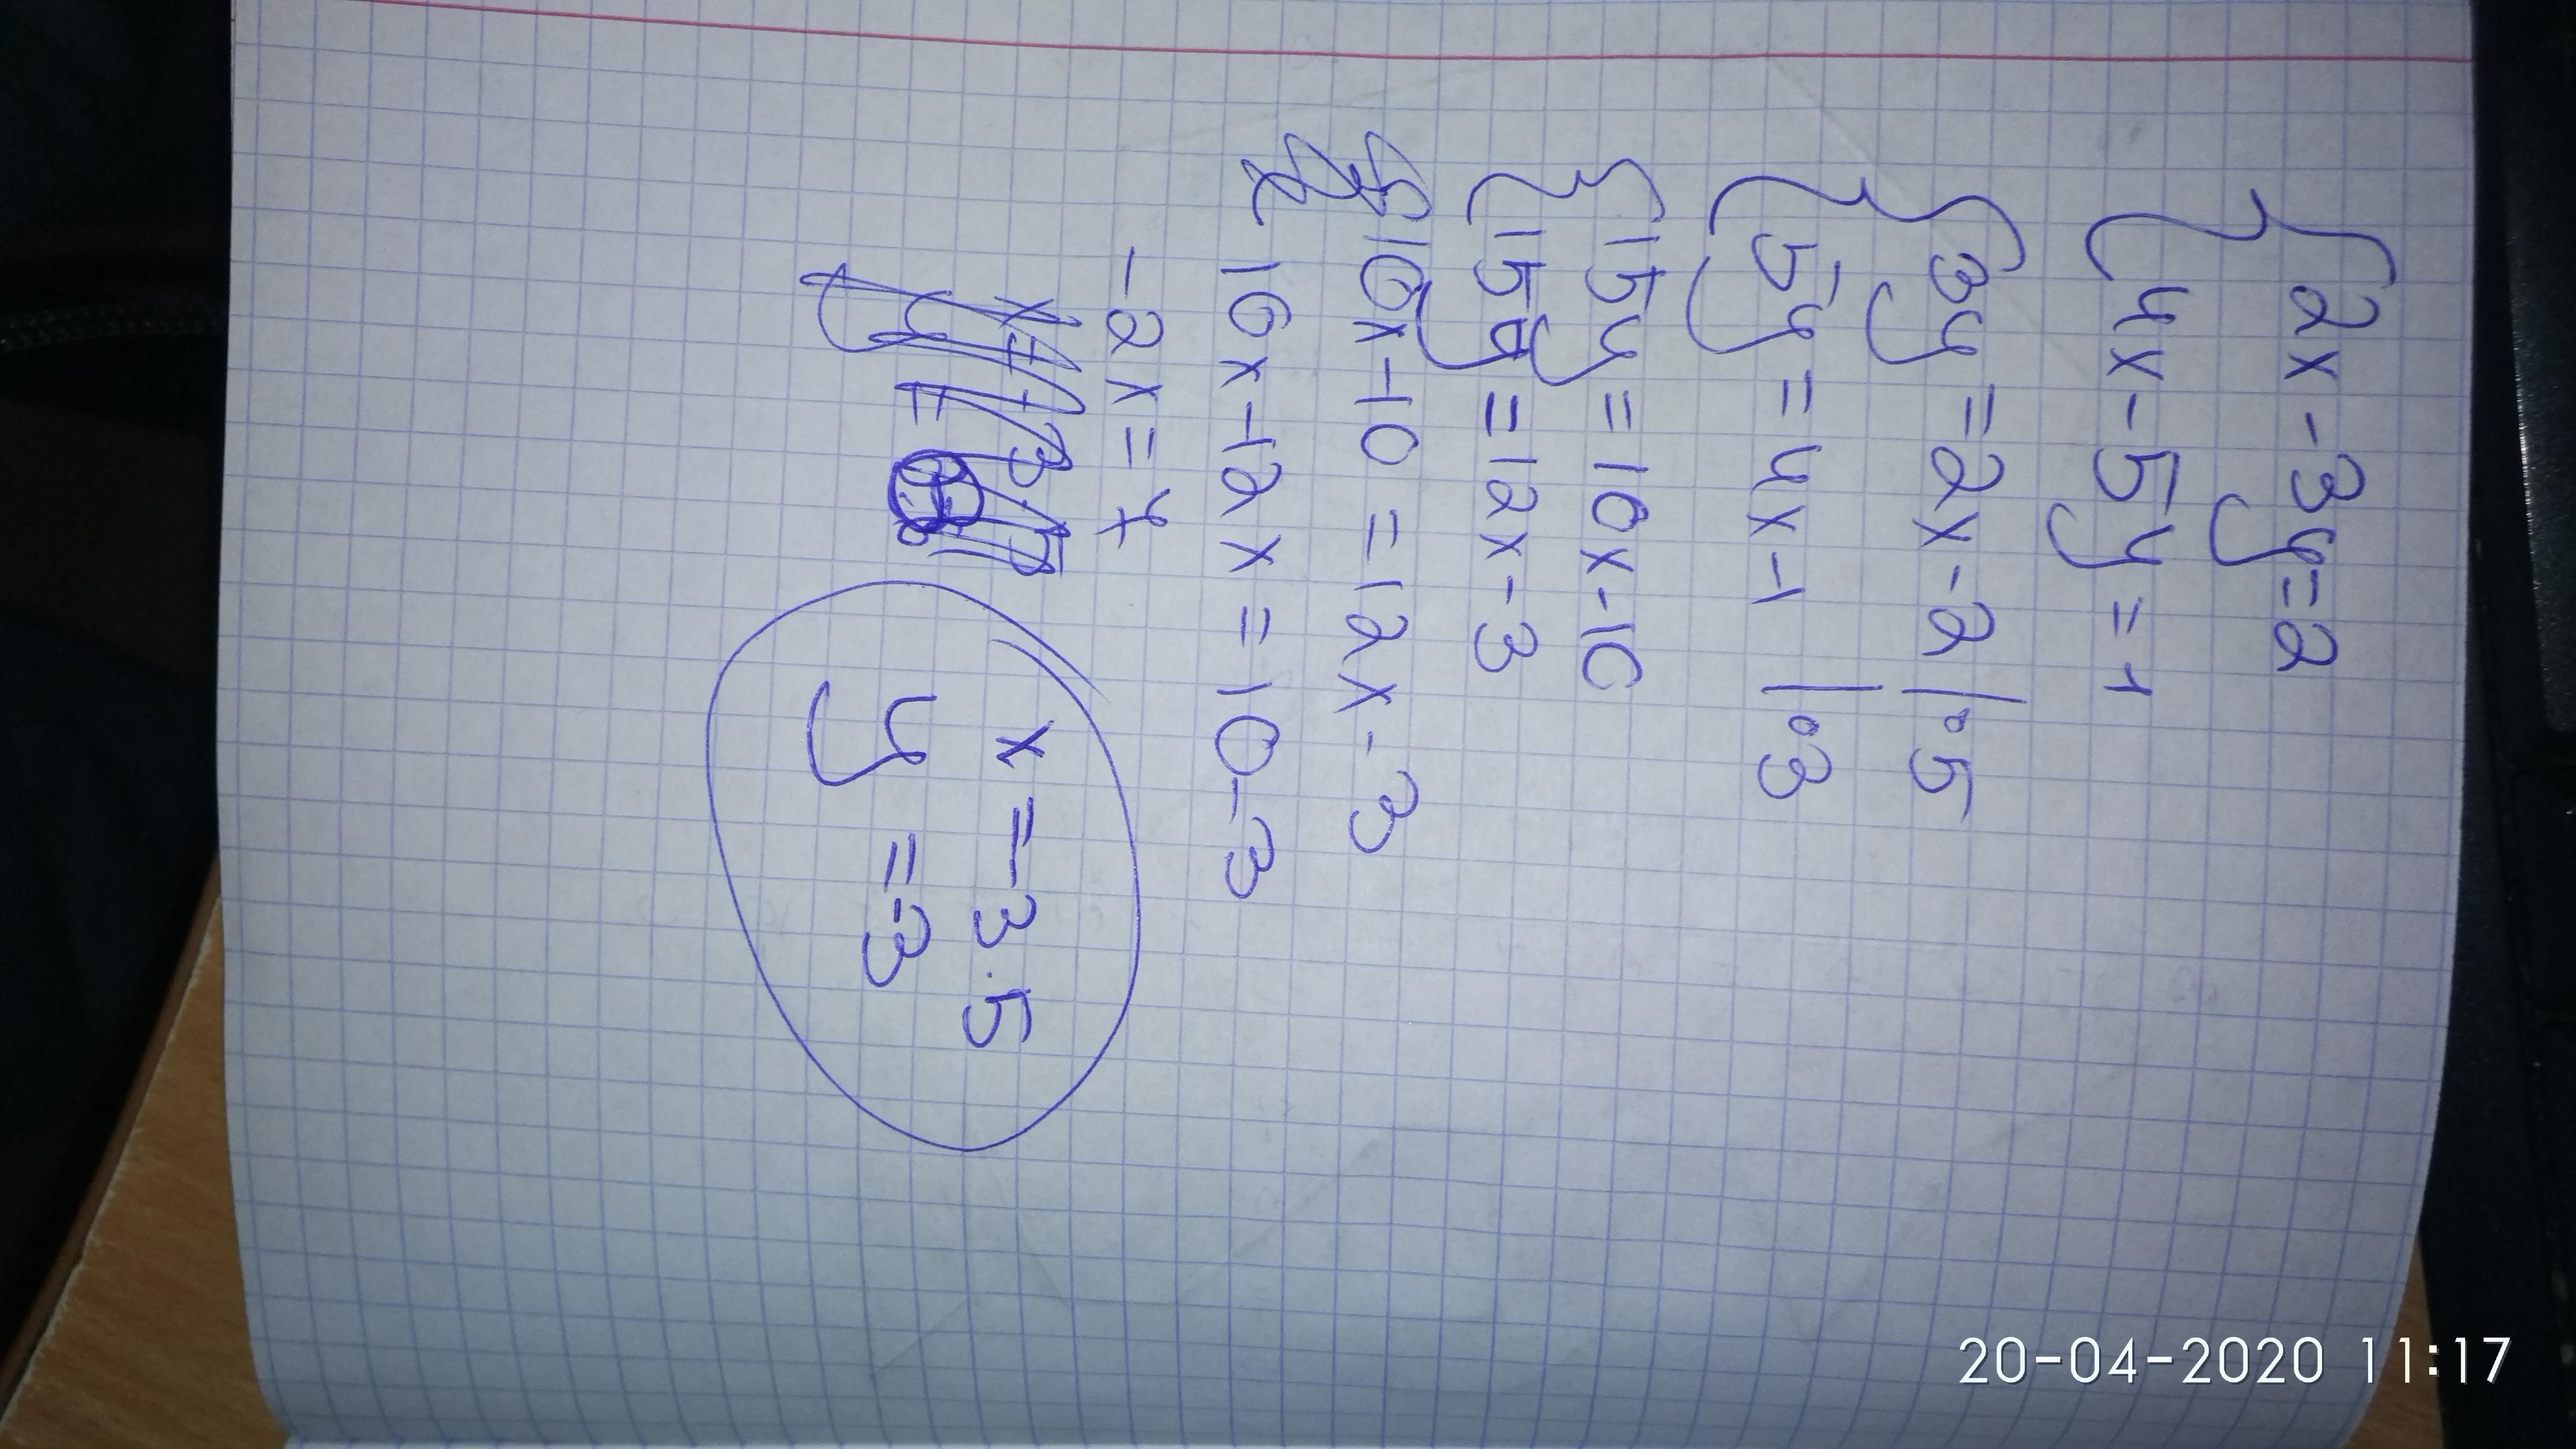 {2x-3y=2
{4x-5y=1
{3y=2x-2 |·5
{5y=4x-1 |·3
{15y=10x-10
{15y=12x-3
10x-10=12x-3
10x-12x=10-3
-2x=7
x=-3.5
y=-3
20-04-2020 11:17